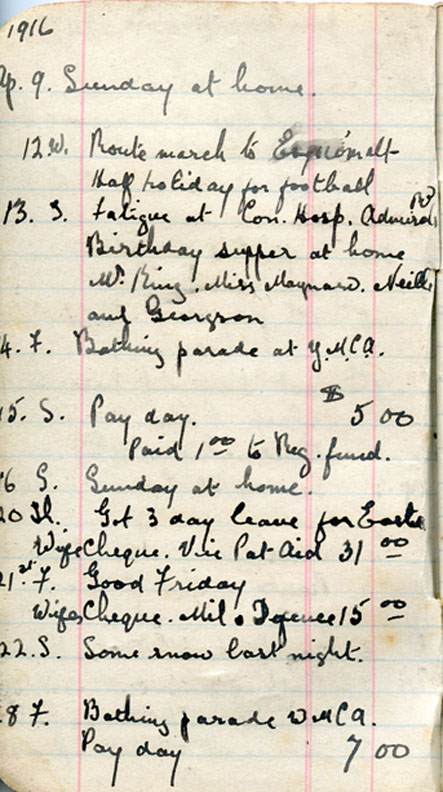 1916
Ap. 9. Sunday at home.
12. W. Route march to Esquimalt
Half holiday for football
13. S. Fatigue at Con. Hosp. Admirals Rd
Birthday supper at home
Mr. King. Miss Maynard. Neill
and Georgson
4. F. Bathing parade at Y.M.C.A.
15. S. Pay day. $ 5 00
Paid 1 00 to Reg. fund.
16 S. Sunday at home.
20 Th. Got 3 day leave for Easter
Wife Cheque. Vic Pat Aid 31 00
21st F. Good Friday
Wifes Cheque. Mil. Defence 15 00
22. S. Some snow last night.
8 F. Bathing parade Y M C A.
Pay day 7 00